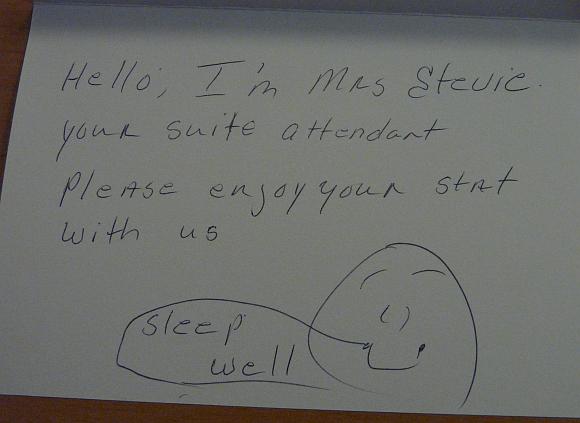 Hello, I'm Mrs Stevie.
your suite attendant
Please enjoy your start
with us
sleep
well